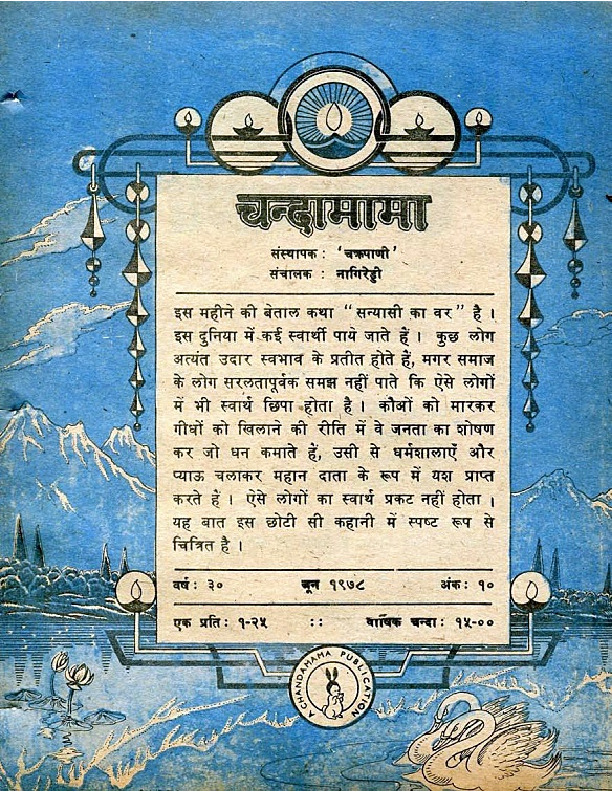 चन्दामामा
संस्थापक : 'चक्रपाणी'
संचालक : नागिरेड्डी
इस महीने की बेताल कथा "सन्यासी का वर" है ।
इस दुनिया में कई स्वार्थी पाये जाते हैं । कुछ लोग
अत्यंत उदार स्वभाव के प्रतीत होते हैं, मगर समाज
के लोग सरलतापूर्वक समझ नहीं पाते कि ऐसे लोगों
में भी स्वार्थ छिपा होता है । कौओं को मारकर
गीधों को खिलाने की रीति में वे जनता का शोषण
कर जो धन कमाते हैं, उसी से धर्मशालाएँ और
प्याऊ चलाकर महान दाता के रूप में यश प्राप्त
करते हैं । ऐसे लोगों का स्वार्थ प्रकट नहीं होता ।
यह बात इस छोटी सी कहानी में स्पष्ट रूप से
चित्रित है ।
वर्ष: ३० जून १९७८ अंक: १०
एक प्रति: १-२५ :: वार्षिक चन्दा: १५-००
A CHANDAMAMA PUBLICATION